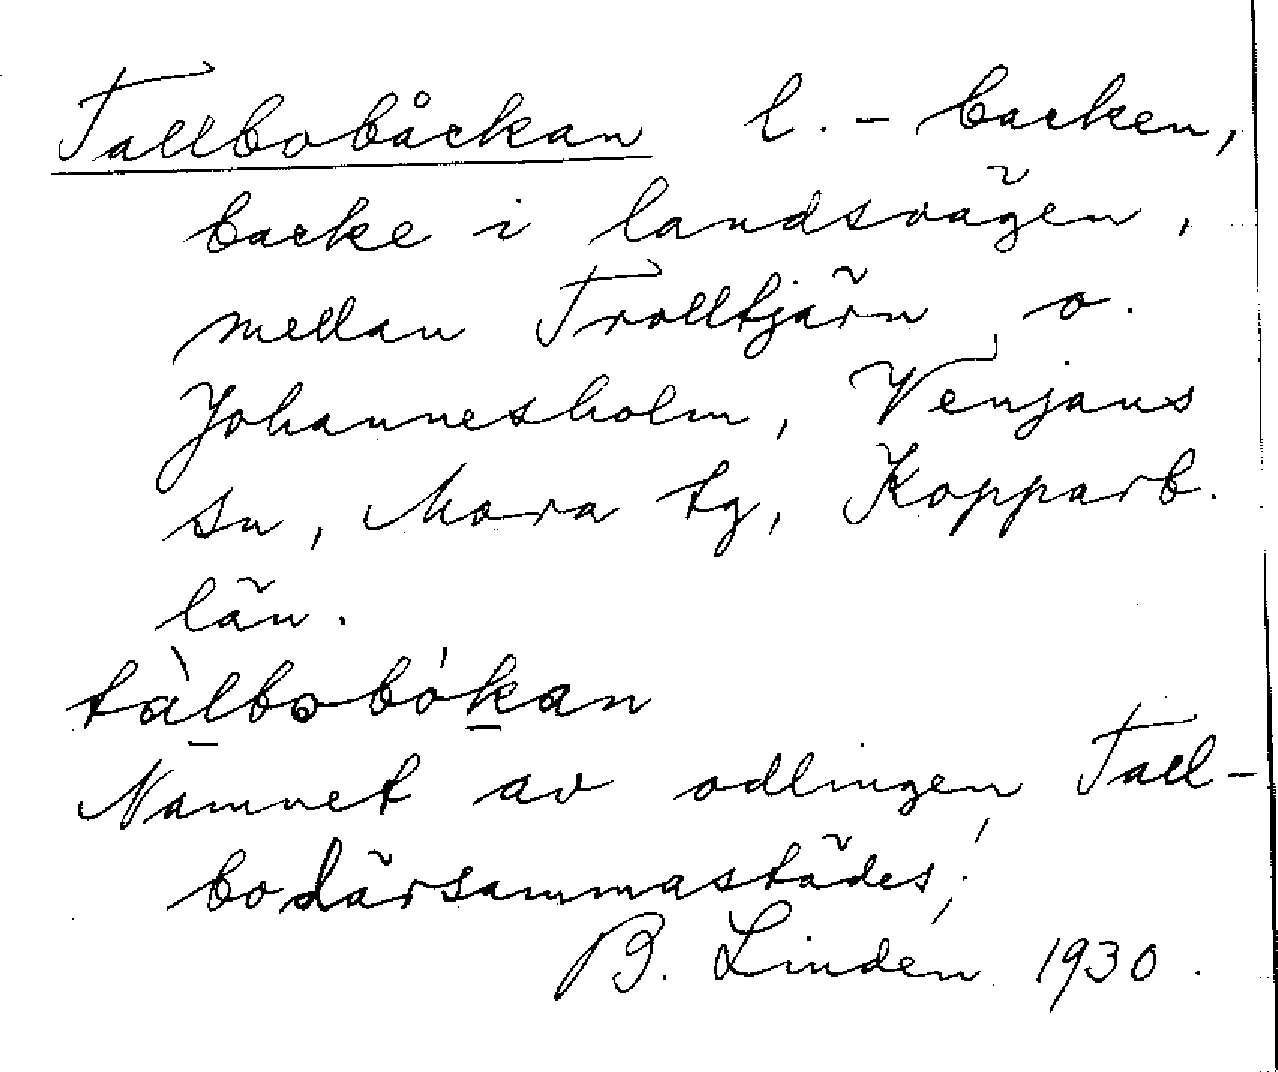 Tallbobåckan l. - backen,
backe i landsvägen,
mellan Trolltjärn o.
Johannesholm, Venjans
sn, Mora tg, Kopparb.
län.
tàlbobókan
Namnet av odlingen Tall-
bo därsammastädes;
B. Linden 1930.